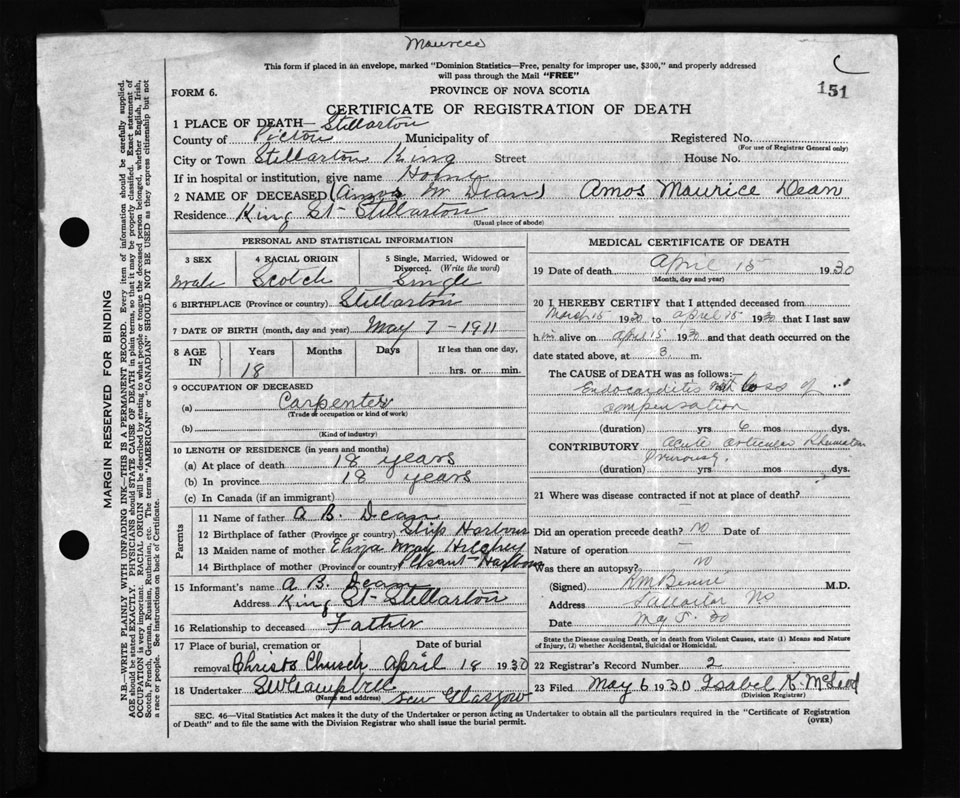 Maurice
This form if placed in an envelope, marked "Dominion Statistics—Free, penalty for improper use, $300," and properly addressed
will pass through the Mail "FREE"
C
151
FORM 6.
PROVINCE OF NOVA SCOTIA
CERTIFICATE OF REGISTRATION OF DEATH
1 PLACE OF DEATH— Stellarton
County of Pictou Municipality of Registered No.
(For use of Registrar General only)
City or Town Stellarton King Street House No.
If in hospital or institution, give name Home
2 NAME OF DECEASED (Amos M Dean) Amos Maurice Dean
Residence King St- Stellarton
(Usual place of abode)
PERSONAL AND STATISTICAL INFORMATION
3 SEX 4 RACIAL ORIGIN 5 Single, Married, Widowed or
Divorced. (Write the word)
Male Scotch Single
6 BIRTHPLACE (Province or country) Stellarton
7 DATE OF BIRTH (month, day and year) May 7 - 1911
8 AGE IN Years Months Days If less than one day,
18 hrs. or min.
9 OCCUPATION OF DECEASED
(a) Carpenter
(Trade or occupation or kind of work)
(b)
(Kind of industry)
10 LENGTH OF RESIDENCE (in years and months)
(a) At place of death 18 years
(b) In province 18 years
(c) In Canada (if an immigrant)
Parents
11 Name of father A B. Dean
12 Birthplace of father (Province or country) Ship Harbour
13 Maiden name of mother Eliza May
14 Birthplace of mother (Province or country) Plesant-Harbour
15 Informant's name A B. Dean
Address King St- Stellarton
16 Relationship to deceased Father
17 Place of burial, cremation or Date of burial
removal Christs Church April 18 1930
18 Undertaker
(Name and address) New Glasgow
MEDICAL CERTIFICATE OF DEATH
19 Date of death April 15 1930
(Month, day and year)
20 I HEREBY CERTIFY that I attended deceased from
March 15 1930 to April 15 1930 that I last saw
him alive on April 15 1930 and that death occurred on the
date stated above, at 3 m.
The CAUSE of DEATH was as follows:—
Endocarditis with loss of
compensation
(duration) yrs 6 mos dys.
CONTRIBUTORY Acute articular Rheumatism
previously.
(duration) yrs. mos. dys.
21 Where was disease contracted if not at place of death?
—
Did an operation precede death? no Date of
Nature of operation —
Was there an autopsy? no
(Signed) M.D.
Address Stellarton NS
Date May 5. 30
State the Disease causing Death, or in death from Violent Causes, state (1) Means and Nature
of Injury, (2) whether Accidental, Suicidal or Homicidal.
22 Registrar's Record Number 2
23 Filed May 6 1930 Isabel K. McLeod
(Division Registrar)
SEC. 46—Vital Statistics Act makes it the duty of the Undertaker or person acting as Undertaker to obtain all the particulars required in the "Certificate of Registration
of Death" and to file the same with the Division Registrar who shall issue the burial permit.
(OVER)
MARGIN RESERVED FOR BINDING
N.B.—WRITE PLAINLY WITH UNFADING INK—THIS IS A PERMANENT RECORD. Every item of information should be carefully supplied.
AGE should be stated EXACTLY. PHYSICIANS should STATE CAUSE OF DEATH in plain terms, so that it may be properly classified. Exact statement of
OCCUPATION is very important. RACIAL ORIGIN will be described by stating to what people or tongue the deceased person belonged, whether English, Irish,
Scotch, French, German, Russian, Ruthenian, etc. The terms "AMERICAN" or "CANADIAN" SHOULD NOT BE USED as they express citizenship but not
a race or people. See instructions on back of Certificate.